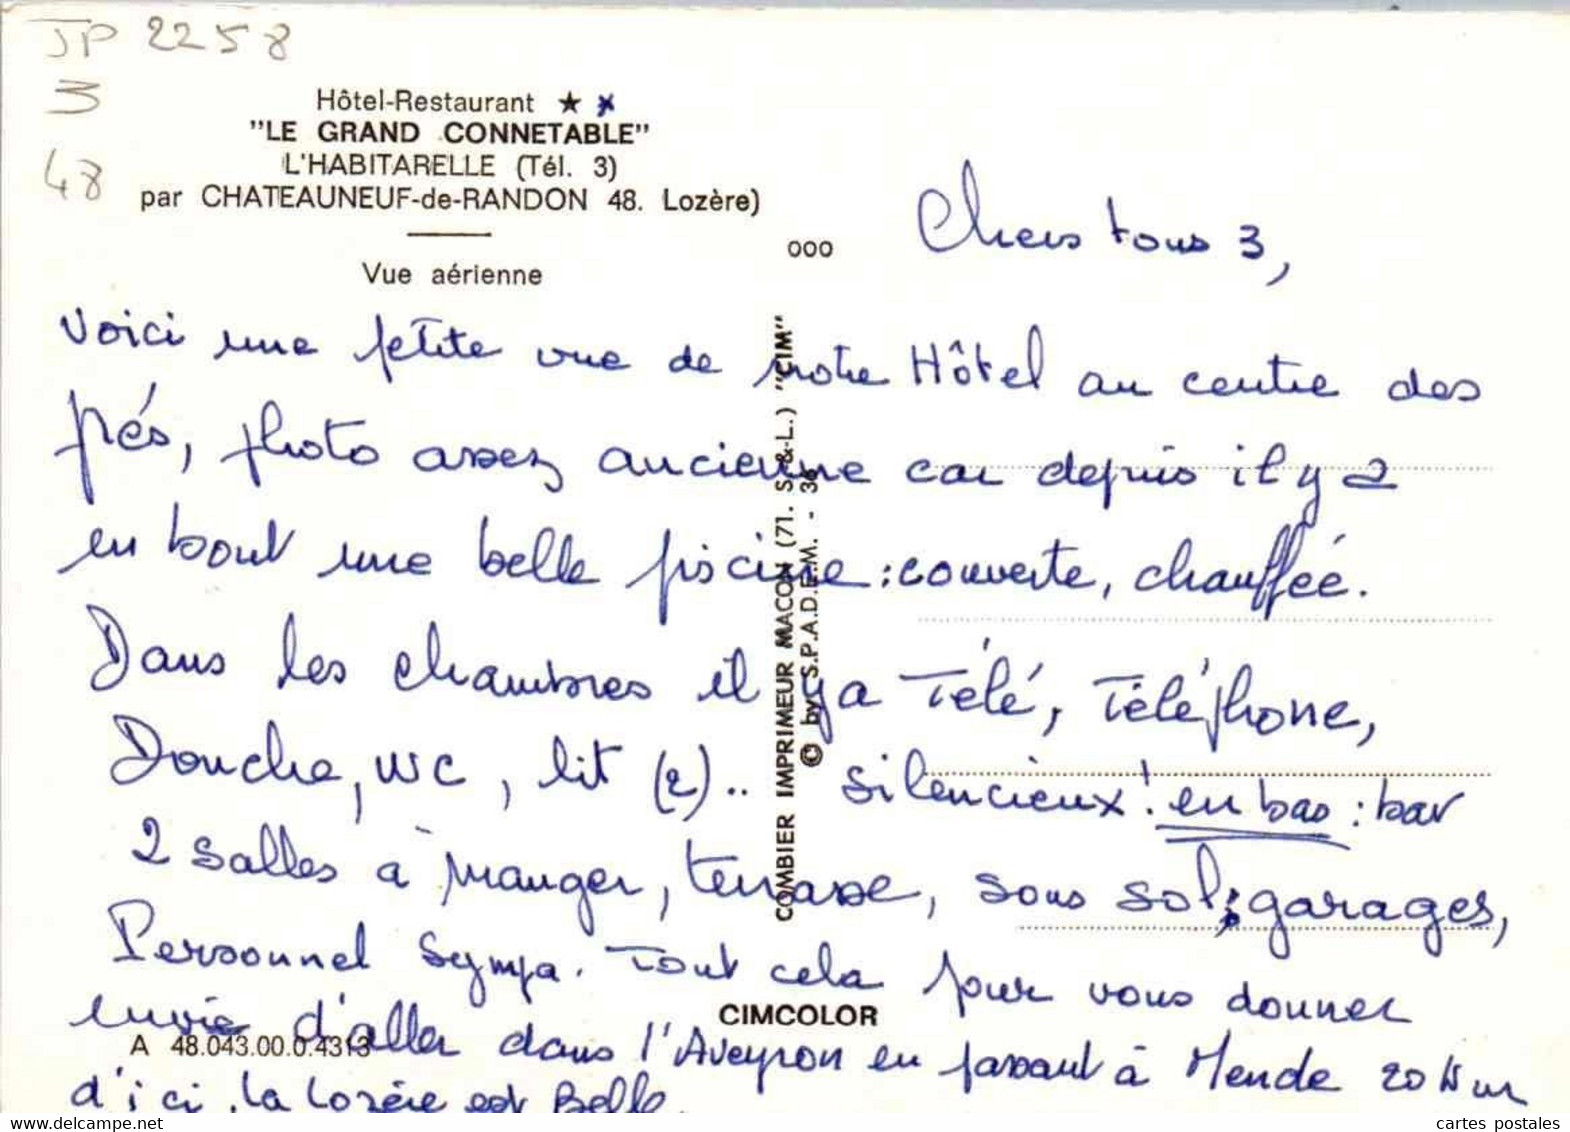 JP 2258
3
48
Hôtel-Restaurant ★ *
"LE GRAND CONNETABLE"
L'HABITARELLE (Tél. 3)
par CHATEAUNEUF-de-RANDON 48. Lozère)
Vue aérienne
ooo
Chers tous 3,
Voici une petite vue de notre Hôtel au centre des
prés, photo assez ancienne car depuis il y a
en bout une belle piscine : couverte, chauffée.
Dans les chambres il y a Télé, Téléphone,
Douche, WC, lit (2).. silencieux ! en bas : bar
2 salles à manger, terrasse, sous sol, garages,
Personnel sympa. Tout cela pour vous donner
envie d'aller dans l'Aveyron en passant à Mende 20 km
d'ici. La Lozère est Belle.
COMBIER IMPRIMEUR MACON (71. S.-&-L.) "CIM"
© by S.P.A.D.E.M. - 36
CIMCOLOR
A 48.043.00.0.4313
www.delcampe.net
cartes postales